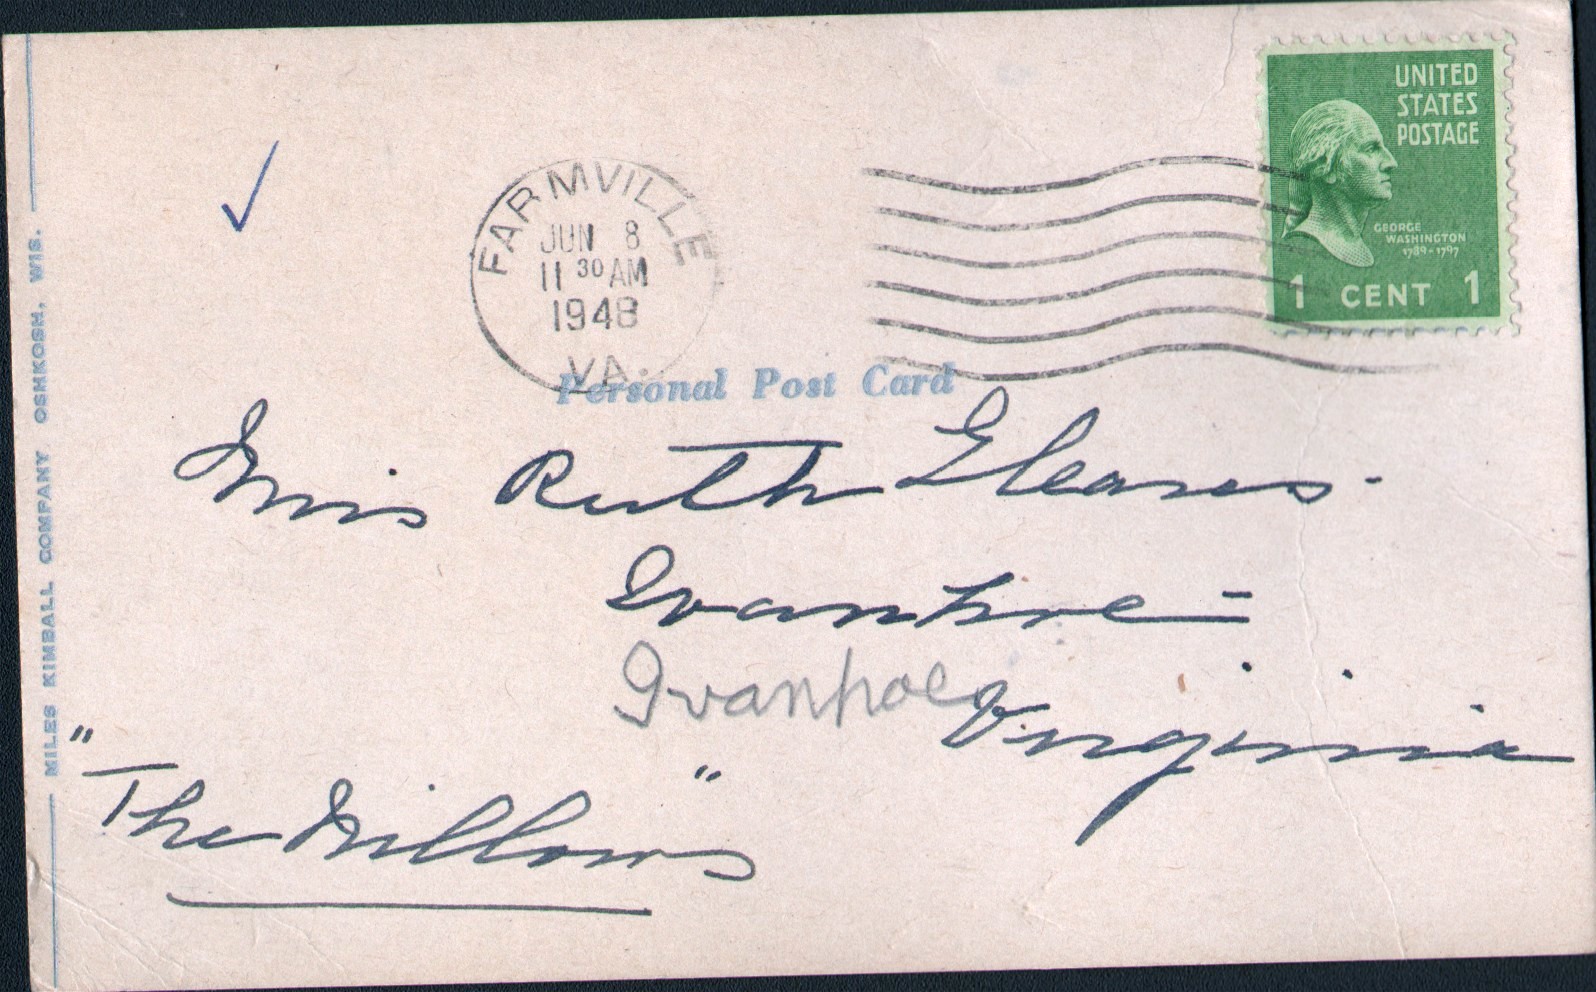 UNITED
STATES
POSTAGE
GEORGE
WASHINGTON
1789-1797
1 CENT 1
FARMVILLE
JUN 8
11 30 AM
1948
VA.
Personal Post Card
Miss Ruth Gleaves.
Ivanhoe =
Ivanhoe
Virginia
"The Willows"
MILES KIMBALL COMPANY OSHKOSH, WIS.